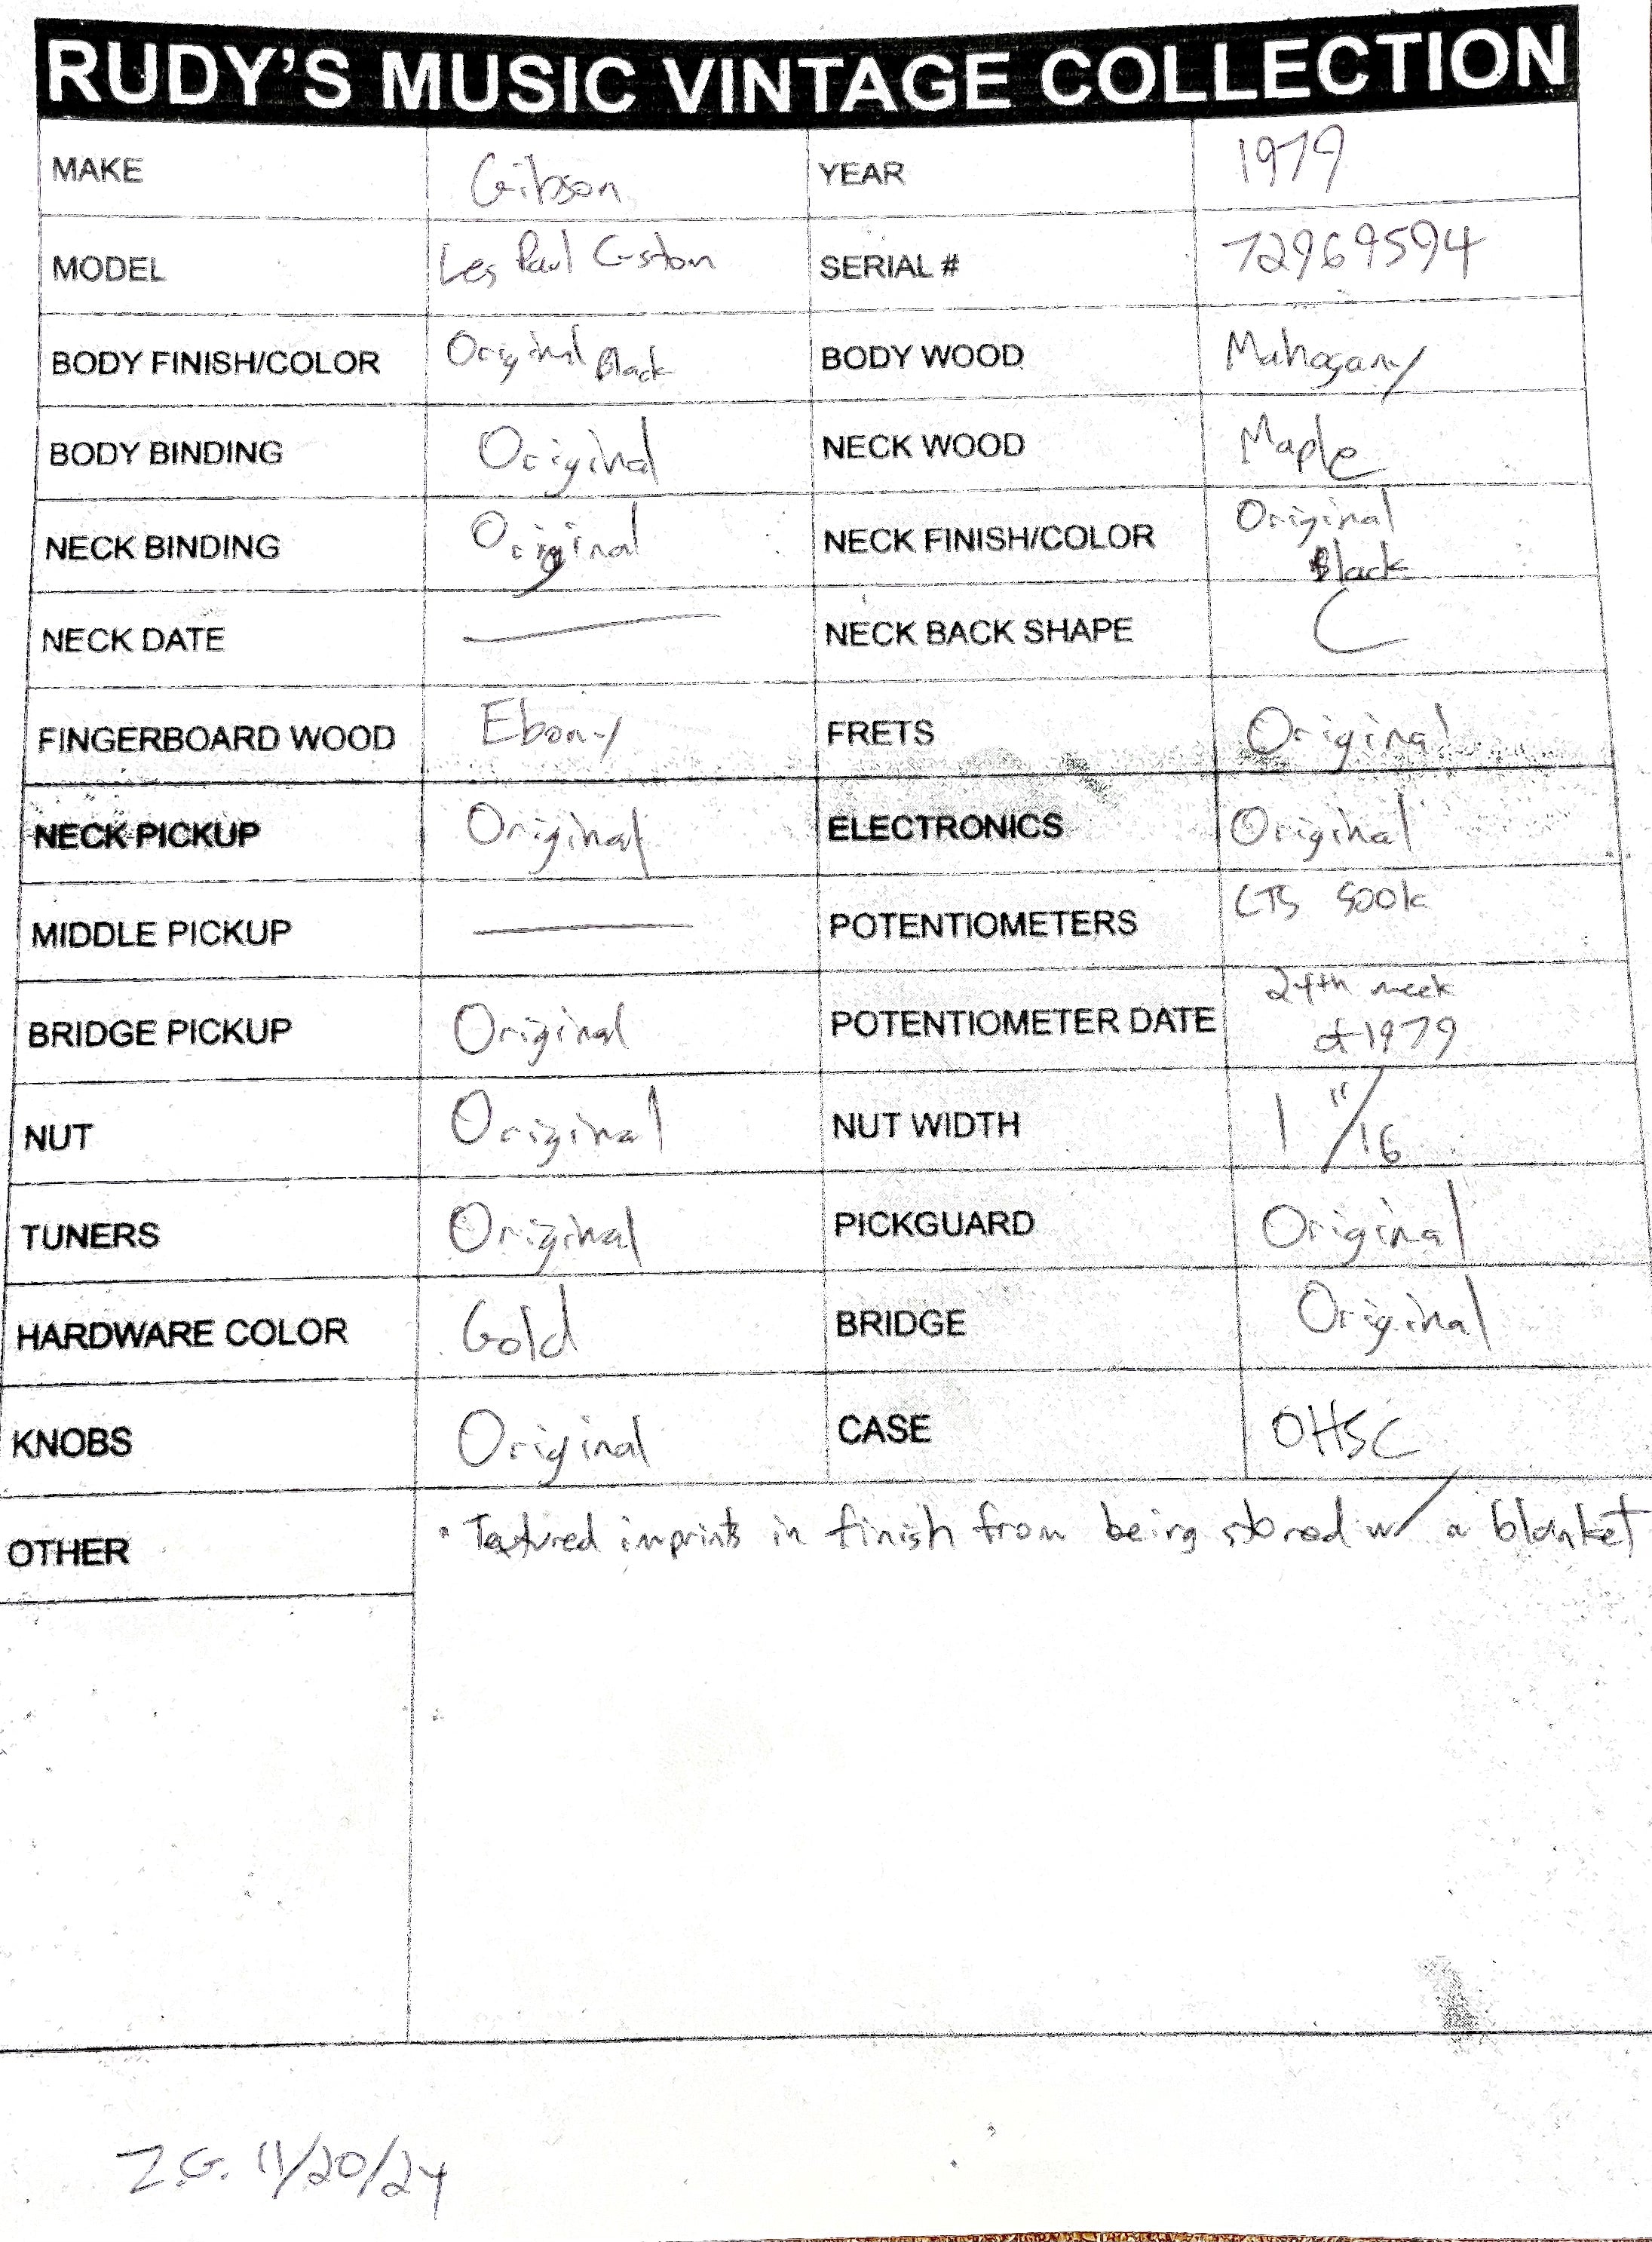 RUDY'S MUSIC VINTAGE COLLECTION
MAKE Gibson YEAR 1979
MODEL Les Paul Custom SERIAL # 72969594
BODY FINISH/COLOR Original Black BODY WOOD Mahogany
BODY BINDING Original NECK WOOD Maple
NECK BINDING Original NECK FINISH/COLOR Original Black
NECK DATE — NECK BACK SHAPE C
FINGERBOARD WOOD Ebony FRETS Original
NECK PICKUP Original ELECTRONICS Original
MIDDLE PICKUP — POTENTIOMETERS CTS 500k
BRIDGE PICKUP Original POTENTIOMETER DATE 24th week of 1979
NUT Original NUT WIDTH 1 11/16
TUNERS Original PICKGUARD Original
HARDWARE COLOR Gold BRIDGE Original
KNOBS Original CASE OHSC
OTHER • Textured imprints in finish from being stored w/ a blanket
Z.G. 11/20/24